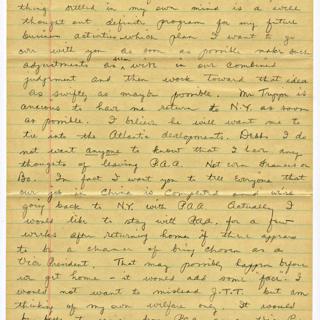 thing settled in my own mind is a well
thought out definite program for my future
business activities, which plan I want to go
over with you as soon as possible, make such
adjustments as will in our combined
judgment and then work toward that idea
as swiftly as maybe possible. Mr Trippe is
anxious to have me return to N.Y. as soon
as possible. I believe he will want me to
tie into the Atlantic developments. Debbs I do
not want anyone to know that I have any
thoughts of leaving P.A.A. Not even Francis or
Bo. In fact I want you to tell everyone that
our job in China is completed and we're
going back to N.Y. with P.A.A. Actually I
would like to stay with P.A.A. for a few
weeks after returning home if there appears
to be a chance of being chosen as a
Vice President. That may possibly happen before
we get home - it would add some face. I
would not want to mislead J.T.T. but am
thinking of my own welfare only. It would
be better to resign from P.A.A.